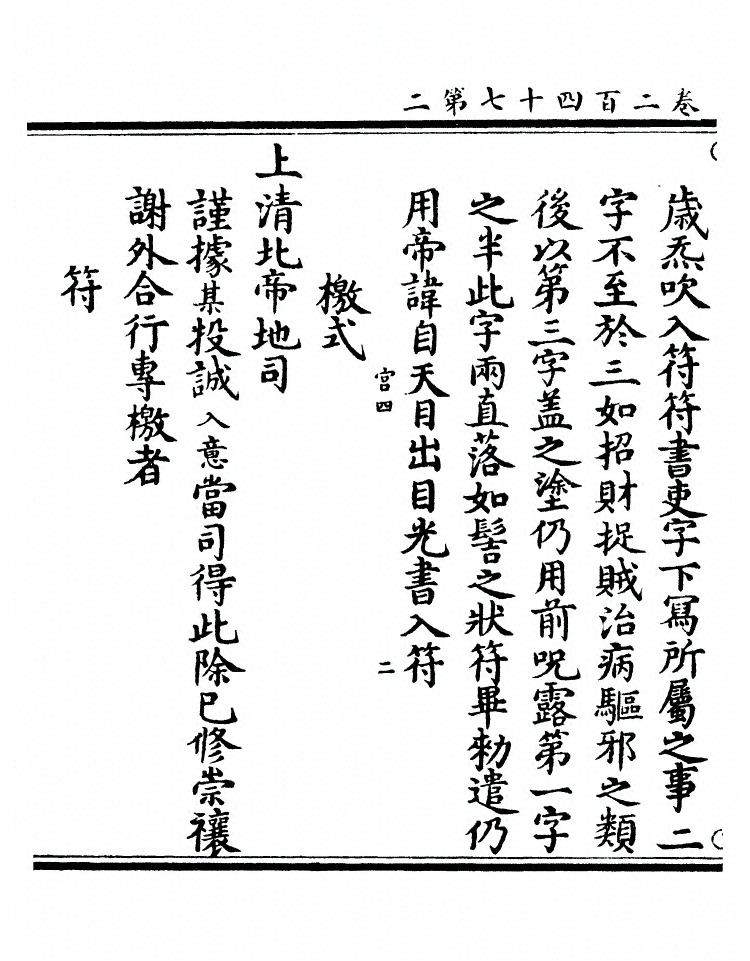 卷二百四十七第二
歳炁吹入符符書吏字下冩所屬之事二
字不至於三如招財捉賊治病驅邪之類
後以第三字盖之塗仍用前呪露第一字
之半此字兩直落如髻之狀符畢勑遣仍
用帝諱自天目出目光書入符
宫四
二
檄式
上清北帝地司
謹據某投誠入意當司得此除巳修崇禳
謝外合行專檄者
符